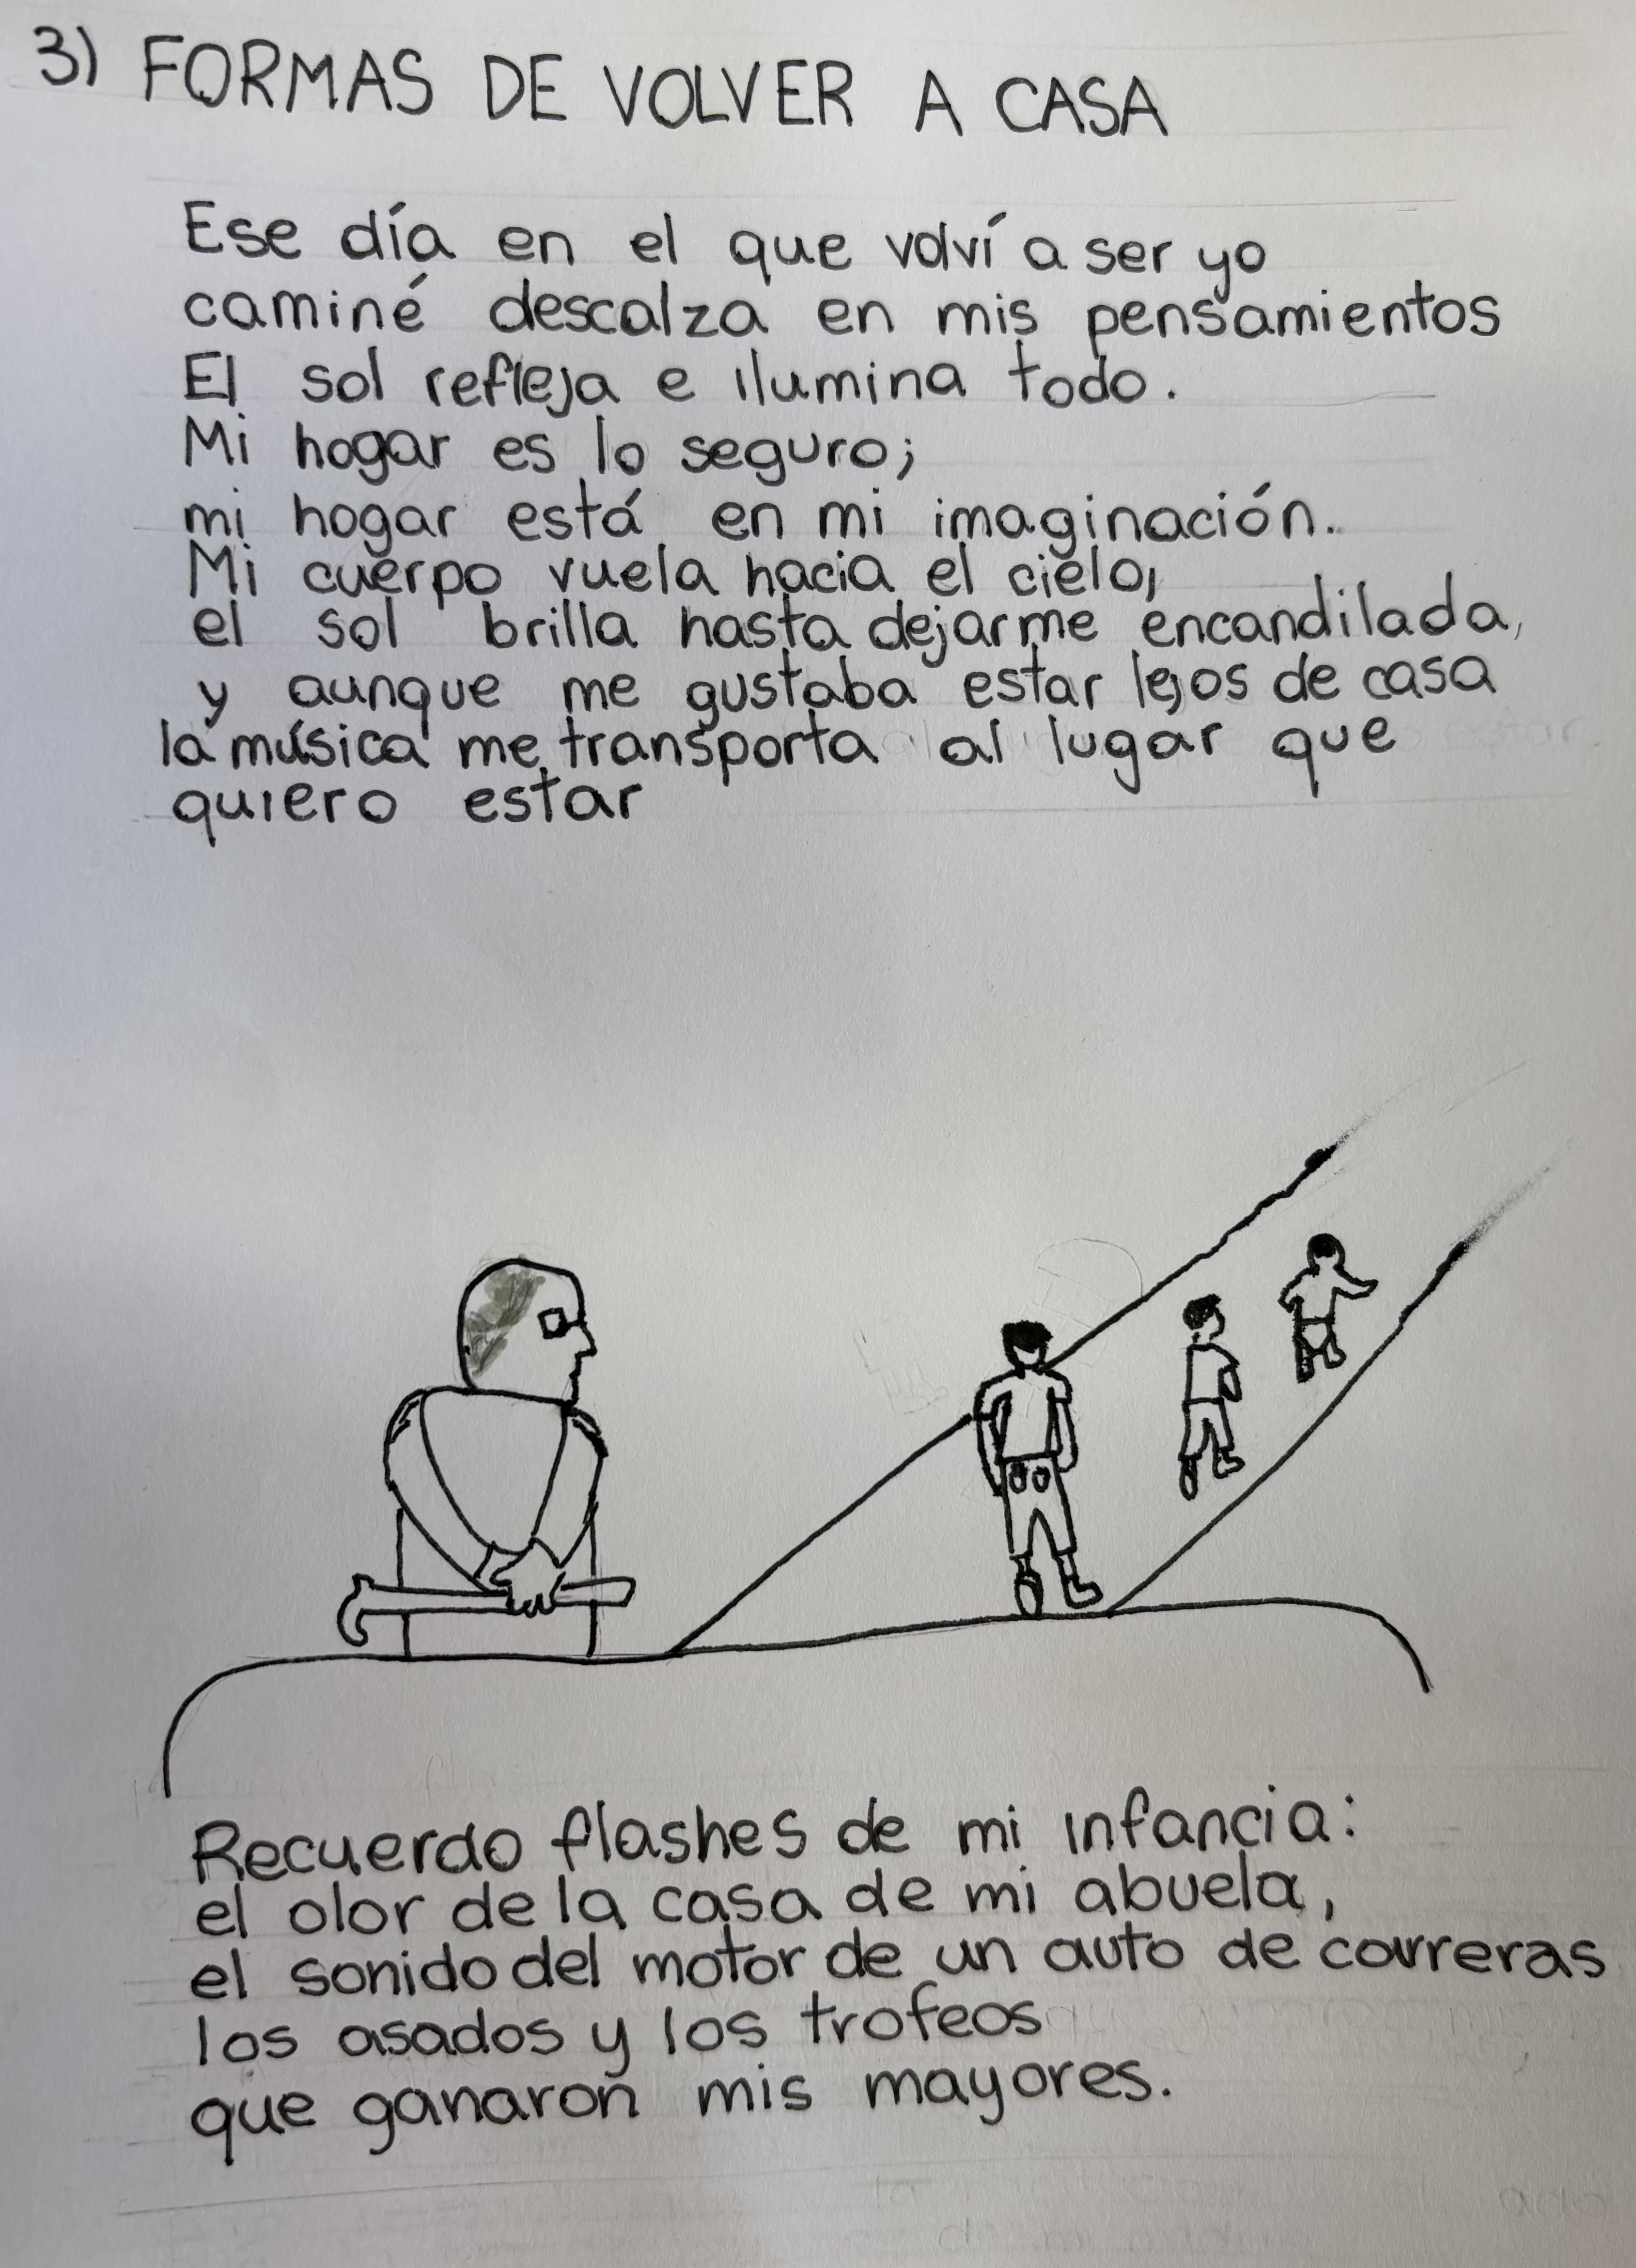 3) FORMAS DE VOLVER A CASA
Ese día en el que volví a ser yo
caminé descalza en mis pensamientos
El sol refleja e ilumina todo.
Mi hogar es lo seguro;
mi hogar está en mi imaginación.
Mi cuerpo vuela hacia el cielo,
el sol brilla hasta dejarme encandilada,
y aunque me gustaba estar lejos de casa
la música me transporta al lugar que
quiero estar
Recuerdo flashes de mi infancia:
el olor de la casa de mi abuela,
el sonido del motor de un auto de carreras
los asados y los trofeos
que ganaron mis mayores.